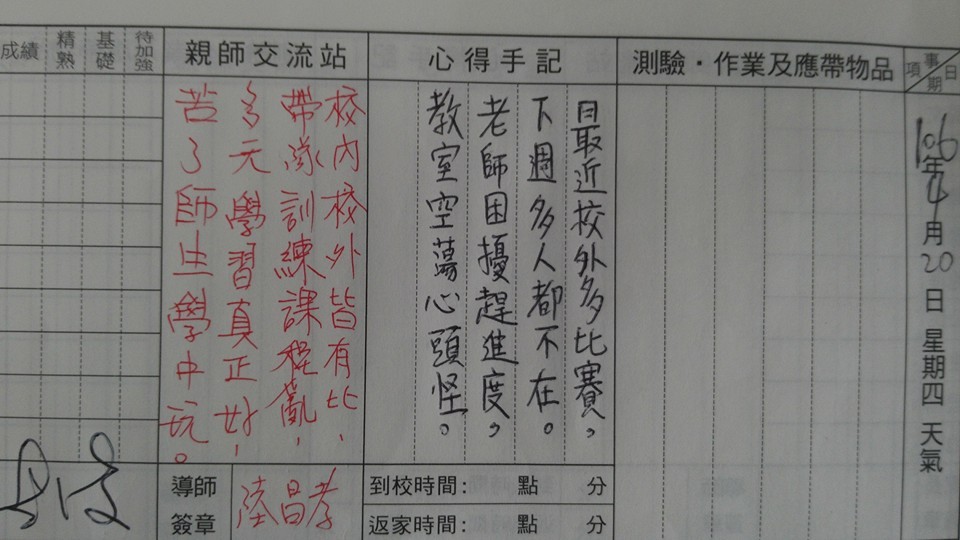 事項
日期
106年4月20日 星期四 天氣
測驗・作業及應帶物品
心得手記
最近校外多比賽，
下週多人都不在。
老師困擾趕進度，
教室空蕩心頭怪。
到校時間： 點 分
返家時間： 點 分
親師交流站
校內校外皆有比，
帶隊訓練課程亂，
多元學習真正好，
苦了師生學中玩。
導師簽章
陸昌孝
待加強
基礎
精熟
成績